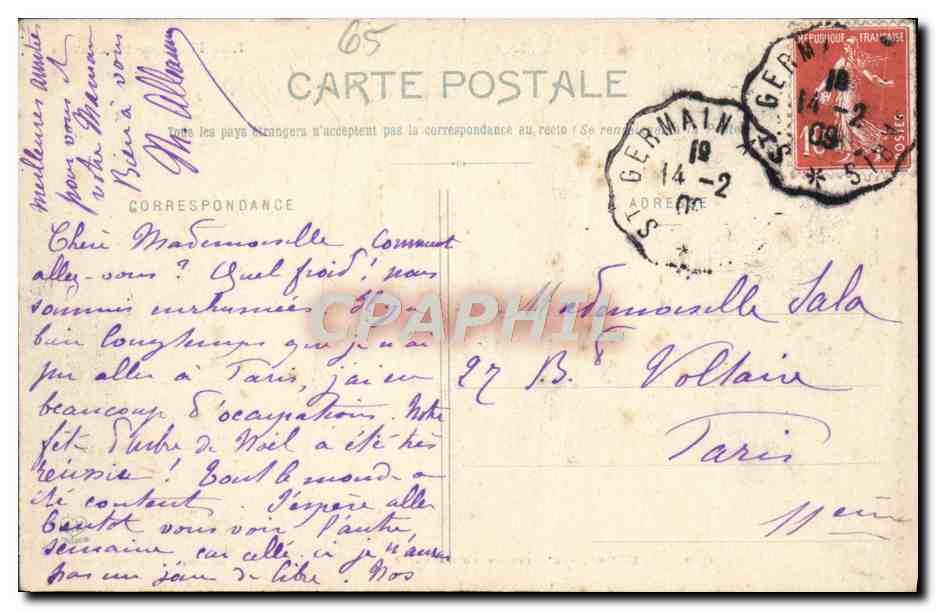 65
CARTE POSTALE
Tous les pays étrangers n'acceptent pas la correspondance au recto (Se renseigner à la Poste)
CORRESPONDANCE
ADRESSE
RÉPUBLIQUE FRANÇAISE
10
POSTES
ST GERMAIN
19
14 -2
09
ST GERMAIN
19
14 -2
Chère Mademoiselle Comment
allez-vous ? Quel froid ! nous
sommes enrhumées. Il y a
bien longtemps que je n'ai
pu aller à Paris, j'ai eu
beaucoup d'occupations. Notre
fête d'arbre de Noël a été très
réussie ! Tout le monde a
été content. J'espère aller
bientôt vous voir l'autre
semaine car celle-ci je n'aurai
pas un jour de libre. Nos
meilleures amitiés
pour vous et
votre Maman
Bien à vous
Mademoiselle Sala
27 Bd Voltaire
Paris
11ème
CPAPHIL